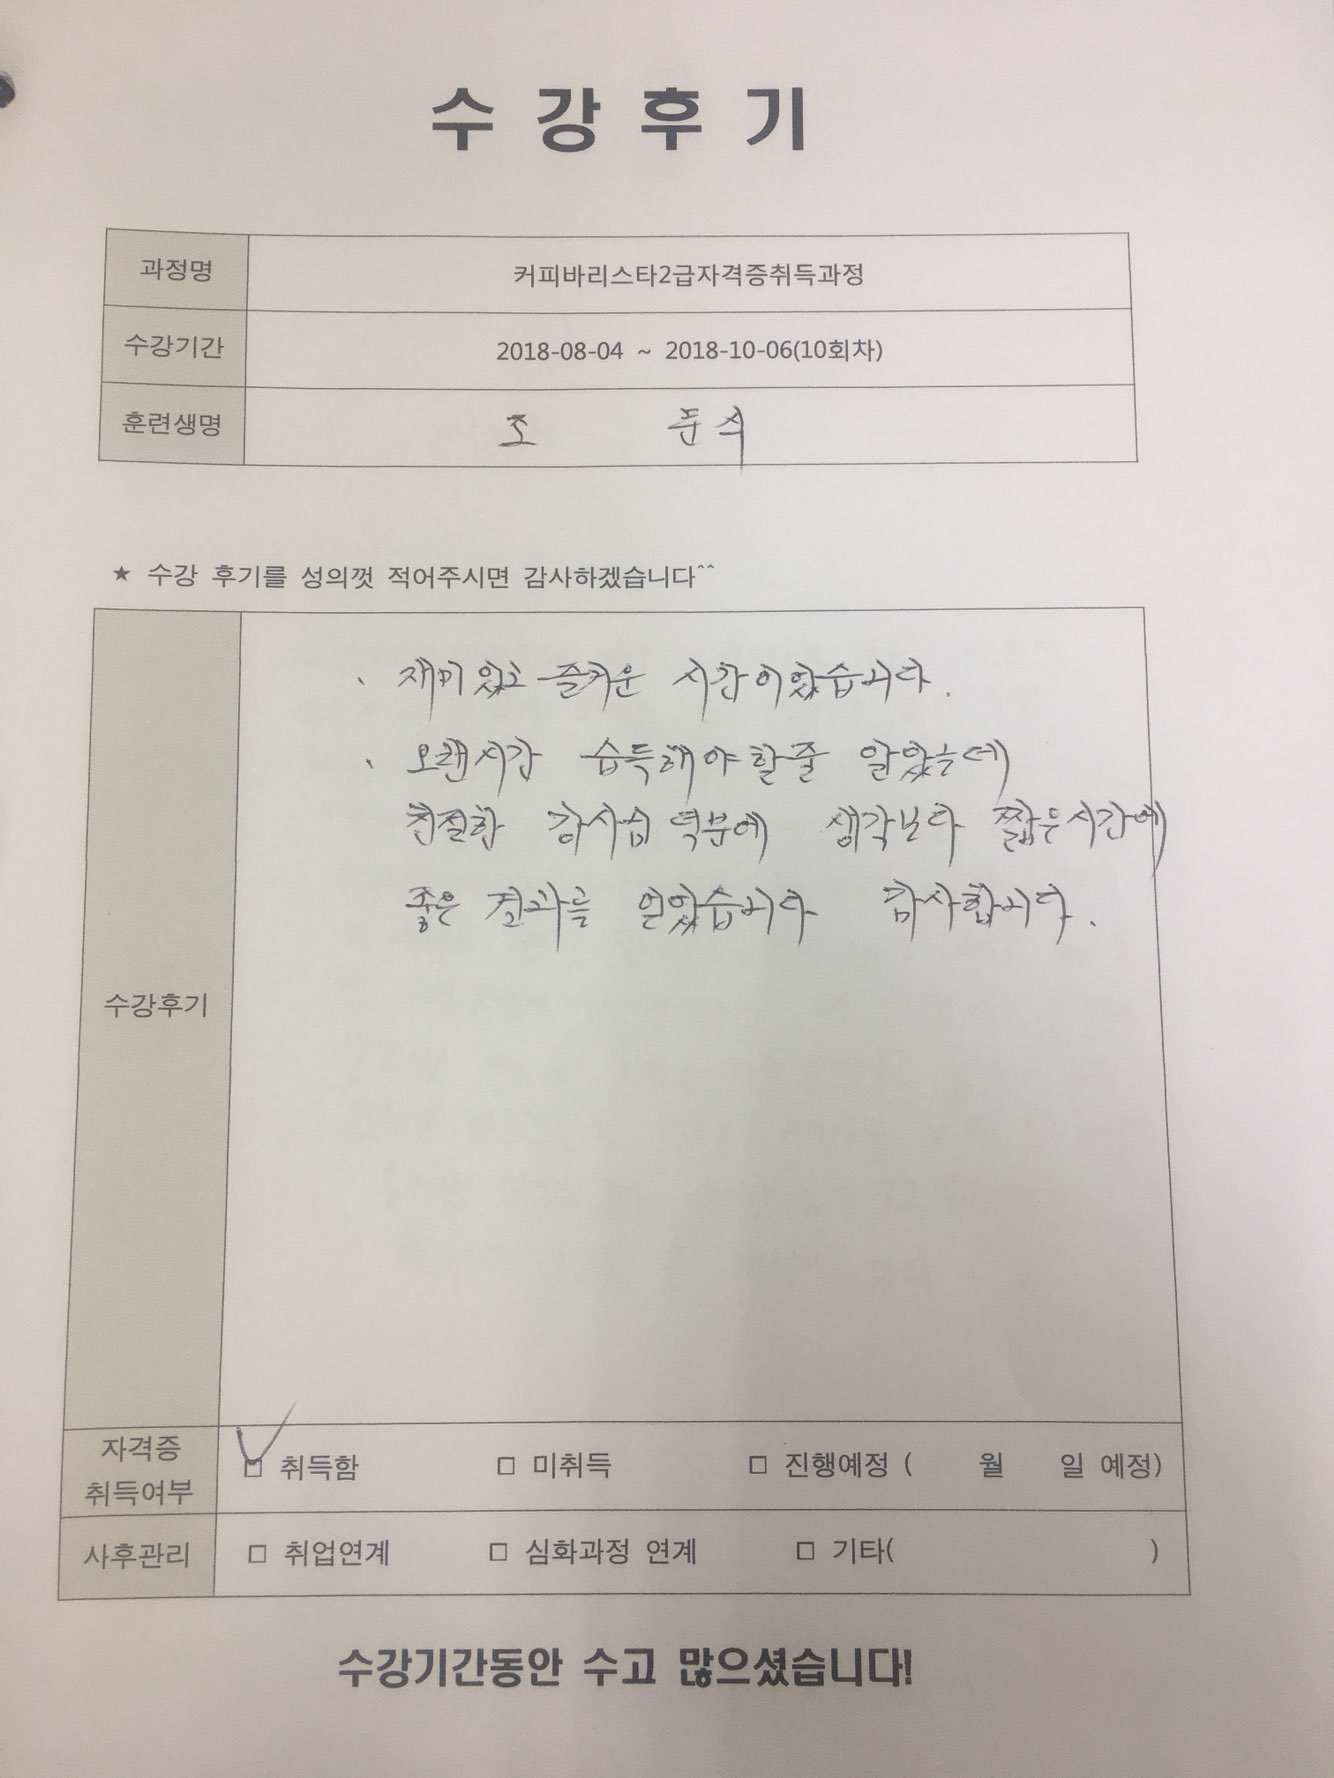 수강후기
과정명 커피바리스타2급자격증취득과정
수강기간 2018-08-04 ~ 2018-10-06(10회차)
훈련생명 조
★ 수강 후기를 성의껏 적어주시면 감사하겠습니다^^
、 재미있고 즐거운 시간이었습니다.
、 오랜시간 습득해야할줄 알았는데
친절한 강사님 덕분에 생각보다 짧은시간에
좋은 결과를 얻었습니다 감사합니다.
수강후기
자격증 취득여부 ☑ 취득함 □ 미취득 □ 진행예정 ( 월 일 예정)
사후관리 □ 취업연계 □ 심화과정 연계 □ 기타( )
수강기간동안 수고 많으셨습니다!